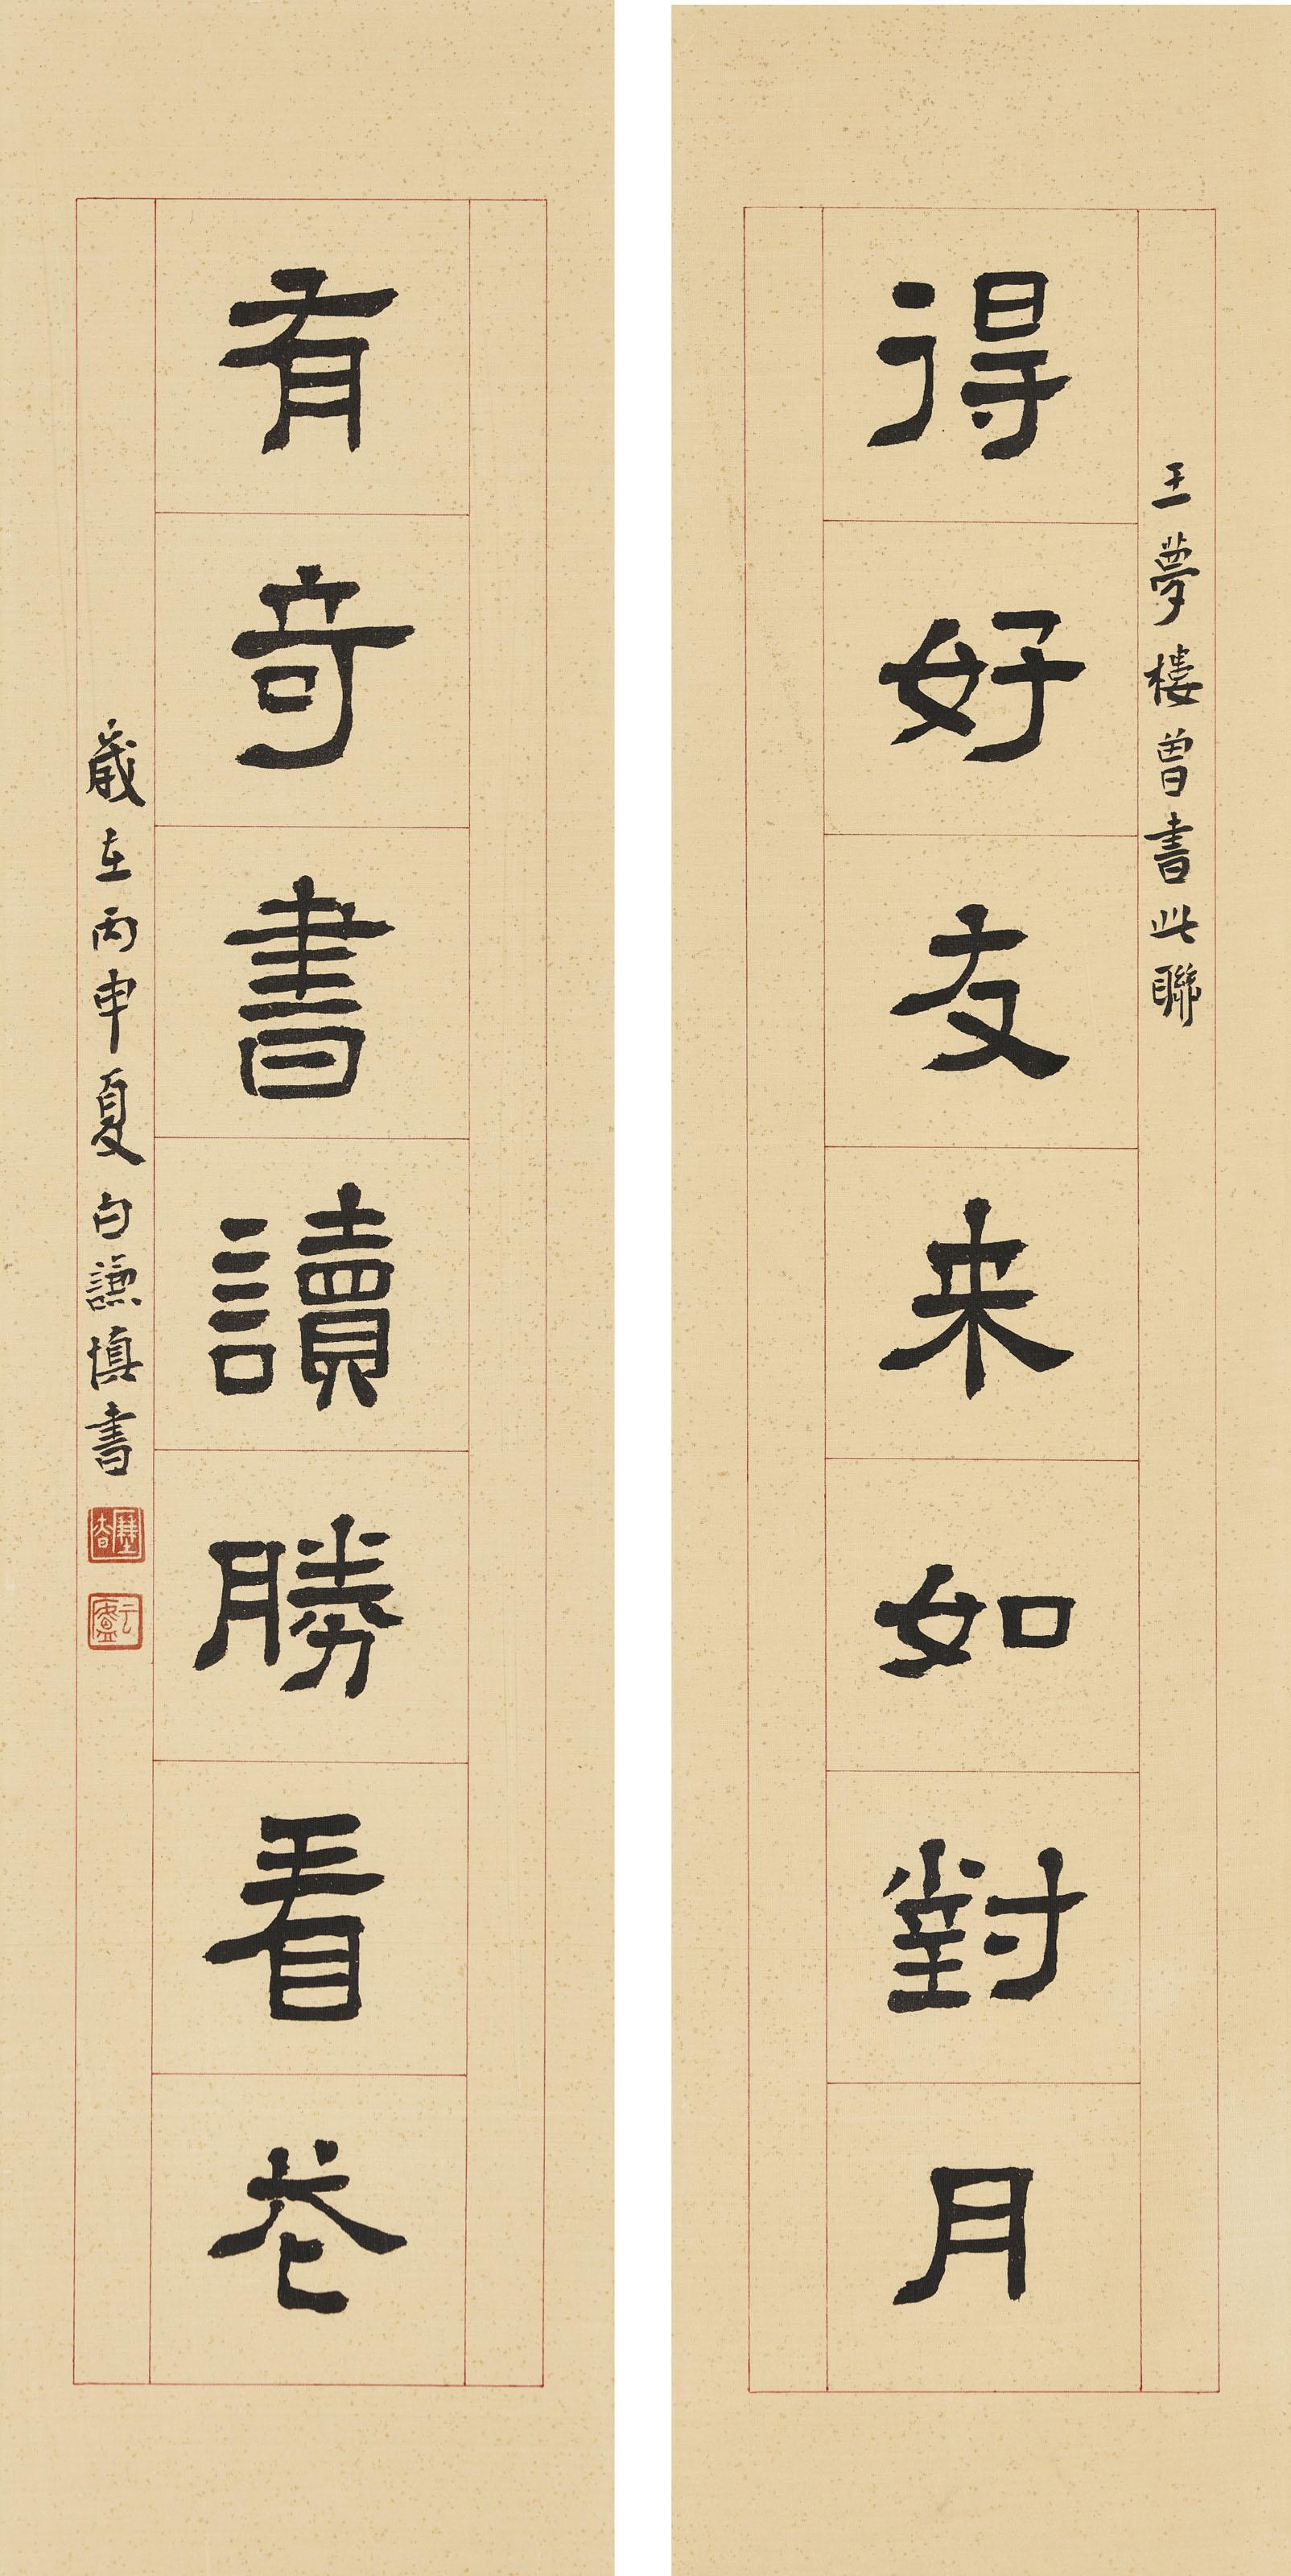 王夢樓曾書此聯
得好友来如對月
有奇書讀勝看花
歲在丙申夏白謙慎書
云廬